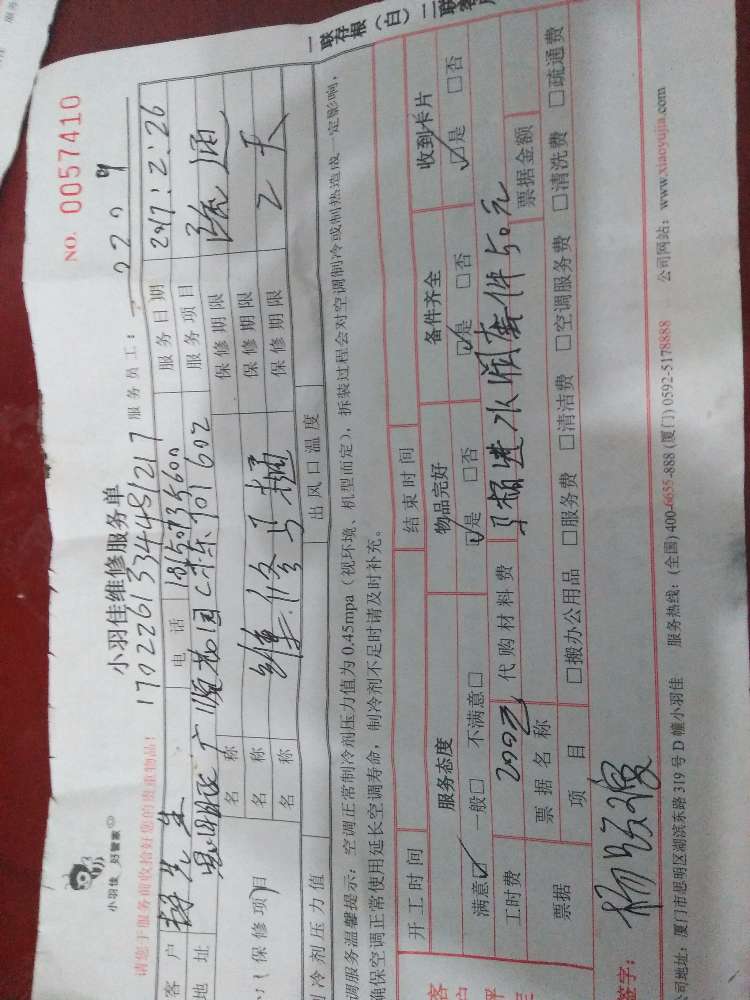 一联存根(白)二联
NO. 0057410
小羽佳 好管家
小羽佳维修服务单
请您于服务前收拾好您的贵重物品!
17022613344481217 服务员工: 2209
客户 先生 电话 18150735600 服务日期 2017:2:26
地址 思明区 602 服务项目 疏通
保修项目 名称 维修马桶 保修期限
名称 保修期限
名称 保修期限 2天
制冷剂压力值 出风口温度
调服务温馨提示:空调正常制冷剂压力值为0.45mpa(视环境、机型而定),拆装过程会对空调制冷或制热造成一定影响,
确保空调正常使用延长空调寿命,制冷剂不足时请及时补充。
开工时间 结束时间
服务态度 物品完好 备件齐全 收到卡片
满意☑ 一般□ 不满意□ ☑是 □否 ☑是 □否 ☑是 □否
工时费 200元 代购材料费 马桶进水阀套件50元
票据 票据名称 票据金额
项目 □搬办公用品 □服务费 □清洁费 □空调服务费 □清洗费 □疏通费
签字:
司地址:厦门市思明区湖滨东路319号D幢小羽佳 服务热线:(全国)400-6655-888 (厦门)0592-5178888 公司网站:www.xiaoyujia.com